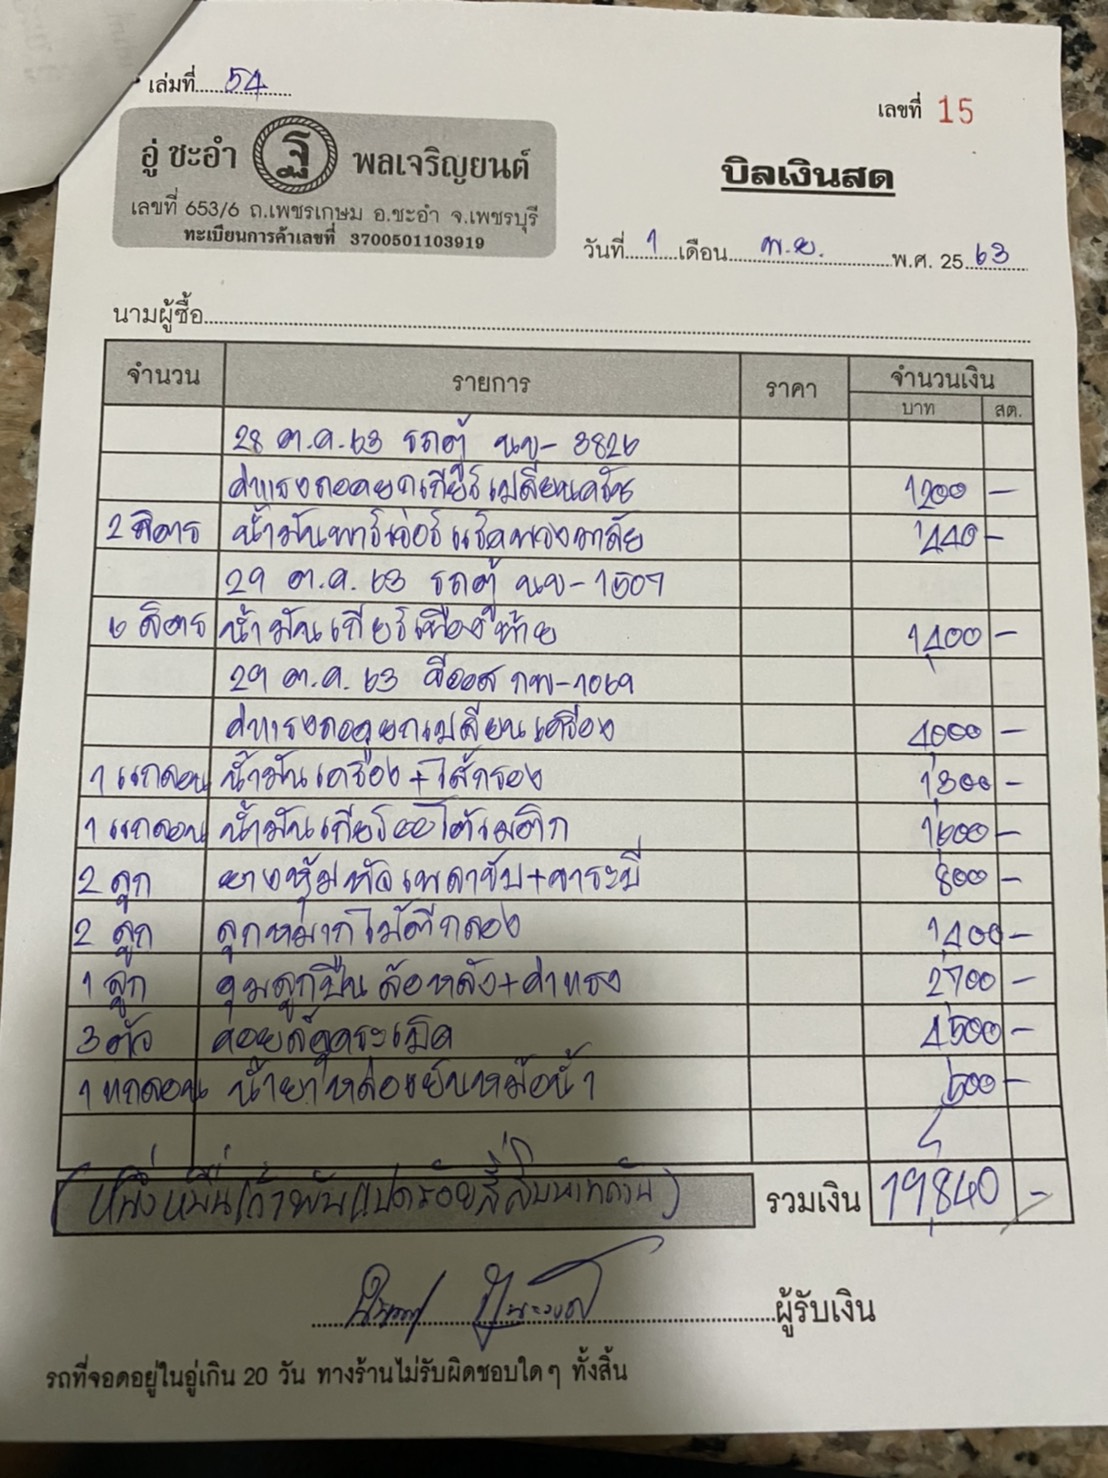 เล่มที่ 54
เลขที่ 15
อู่ ชะอำ ฐ พลเจริญยนต์
เลขที่ 653/6 ถ.เพชรเกษม อ.ชะอำ จ.เพชรบุรี
ทะเบียนการค้าเลขที่ 3700501103919
บิลเงินสด
วันที่ 1 เดือน พ.ย. พ.ศ. 2563
นามผู้ซื้อ
จำนวน รายการ ราคา จำนวนเงิน
บาท สต.
28 ต.ค. 63 รถตู้ นข-3826
ค่าแรงถอดยกเกียร์เปลี่ยนครัช 1200 -
2 ลิตร น้ำมันพาวเวอร์ 440 -
29 ต.ค. 63 รถตู้ นข-1507
6 ลิตร น้ำมันเกียร์เฟืองท้าย 1,400 -
29 ต.ค. 63 วีออส กพ-1069
ค่าแรงถอดยกเปลี่ยนเครื่อง 4,000 -
1 แกลอน น้ำมันเครื่อง+ไส้กรอง 1,300 -
1 แกลอน น้ำมันเกียร์ออโต้เมติก 1,600 -
2 ลูก ยางหุ้มหัวเพลาขับ+จาระบี 800 -
2 ลูก ลูกหมากไม้ตีกลอง 1,400 -
1 ลูก ดุมลูกปืนล้อหลัง+ค่าแรง 2,700 -
3 ตัว คอยล์จุดระเบิด 4,500 -
1 แกลอน น้ำยาหล่อเย็นหม้อน้ำ 500 -
(หนึ่งหมื่นเก้าพันแปดร้อยสี่สิบบาทถ้วน) รวมเงิน 19,840 -
ผู้รับเงิน
รถที่จอดอยู่ในอู่เกิน 20 วัน ทางร้านไม่รับผิดชอบใดๆ ทั้งสิ้น